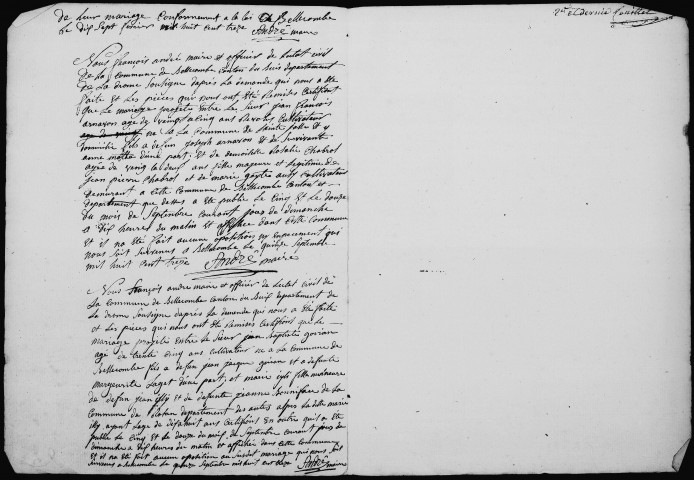 de leur mariage conformement a la loi a Bellecombe
le dix sept fevrier mil huit cent treze André maire
2me et dernier feuillet
Nous françois andré maire et officier de letat civil
de la commune de Bellecombe canton du Buis departement
de la drome soussigne dapres la demande qui nous a été
faite et les pièces qui nous ont été remises certifiont
que le mariage projetté entre le sieur jean françois
arnaxon age de vingt cinq ans revolus cultivateur
né a la commune de Sainte jalle et y
domicilié fils a defun joseph arnaxon et de survivante
anne motte dune part; et de demoiselle rosalie chabrol
agée de vingt deux ans fille majeure et legitime de
jean pierre chabrol et de marie gaytte aussi cultivateur
demeurant a cette commune de Bellecombe canton et
departement que dessus a été publie le cinq et le douze
du mois de septembre courant jours de dimanche
a dix heures du matin et affiche dans cette commune
et il na été fait aucune opotition ny enpechement qui
nous soit survenus a Bellecombe le quinze septembre
mil huit cent treze André maire
Nous françois andre maire et officier de letat civil de
la commune de Bellecombe canton du Buis departement de
la drome soussigne dapres la demande que nous a été faite
et les pieces qui nous ont été remises certifions que le
mariage projetté entre le sieur jean Baptiste goiran
agé de trente cinq ans cultivateur né a la commune de
Bellecombe fils a defun jean jacque goiran et a defunte
marguerite Laget dune part, et marie fille mineure
de defun jean et de defunte jeanne Bouniface de la
commune de departement des autes alpes la ditte marie
ayant lage de dishuit ans certifions en outre quil a été
publie le cinq et le douze du mois de septembre courant jours de
dimanche a dix heures du matin et affiche dans cette commune
et il na été fait aucune opotition au susdit mariage que nous soit
survenus a Bellecombe le quinze septembre mil huit cent treze André maire